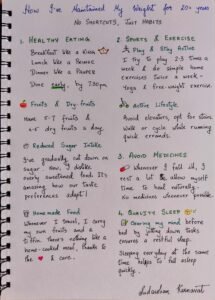 How I've Maintained My Weight for 20+ years
No Shortcuts, Just Habits
1. HEALTHY EATING
Breakfast like a King
Lunch like a Prince
Dinner like a Pauper
Dine early, by 7:30pm.
Fruits & Dry-fruits
Have 5-7 fruits &
4-5 dry fruits a day.
Reduced Sugar Intake
I've gradually cut down on
sugar. Now, I dislike
overly sweetened food. It's
amazing how our taste
preferences adapt!
Homemade Food
Whenever I travel, I carry
my own fruits and a
tiffin. There's nothing like a
home-cooked meal, thanks to
the & care..
2. SPORTS & EXERCISE
Play & Stay Active
I try to play 2-3 times a
week & do simple home
exercises twice a week -
Yoga & free-weight exercise.
Active Lifestyle
Avoid elevators, opt for stairs.
Walk or cycle while running
quick errands.
3. AVOID MEDICINES
Whenever I fall ill, I
rest a lot & allow myself
time to heal naturally.
No medicines whenever possible.
4. QUALITY SLEEP
Clearing my mind before
bed by jotting down tasks
ensures a restful sleep.
Sleeping everyday at the same
time helps to fall asleep
quickly.
Sudarshan Karnavat